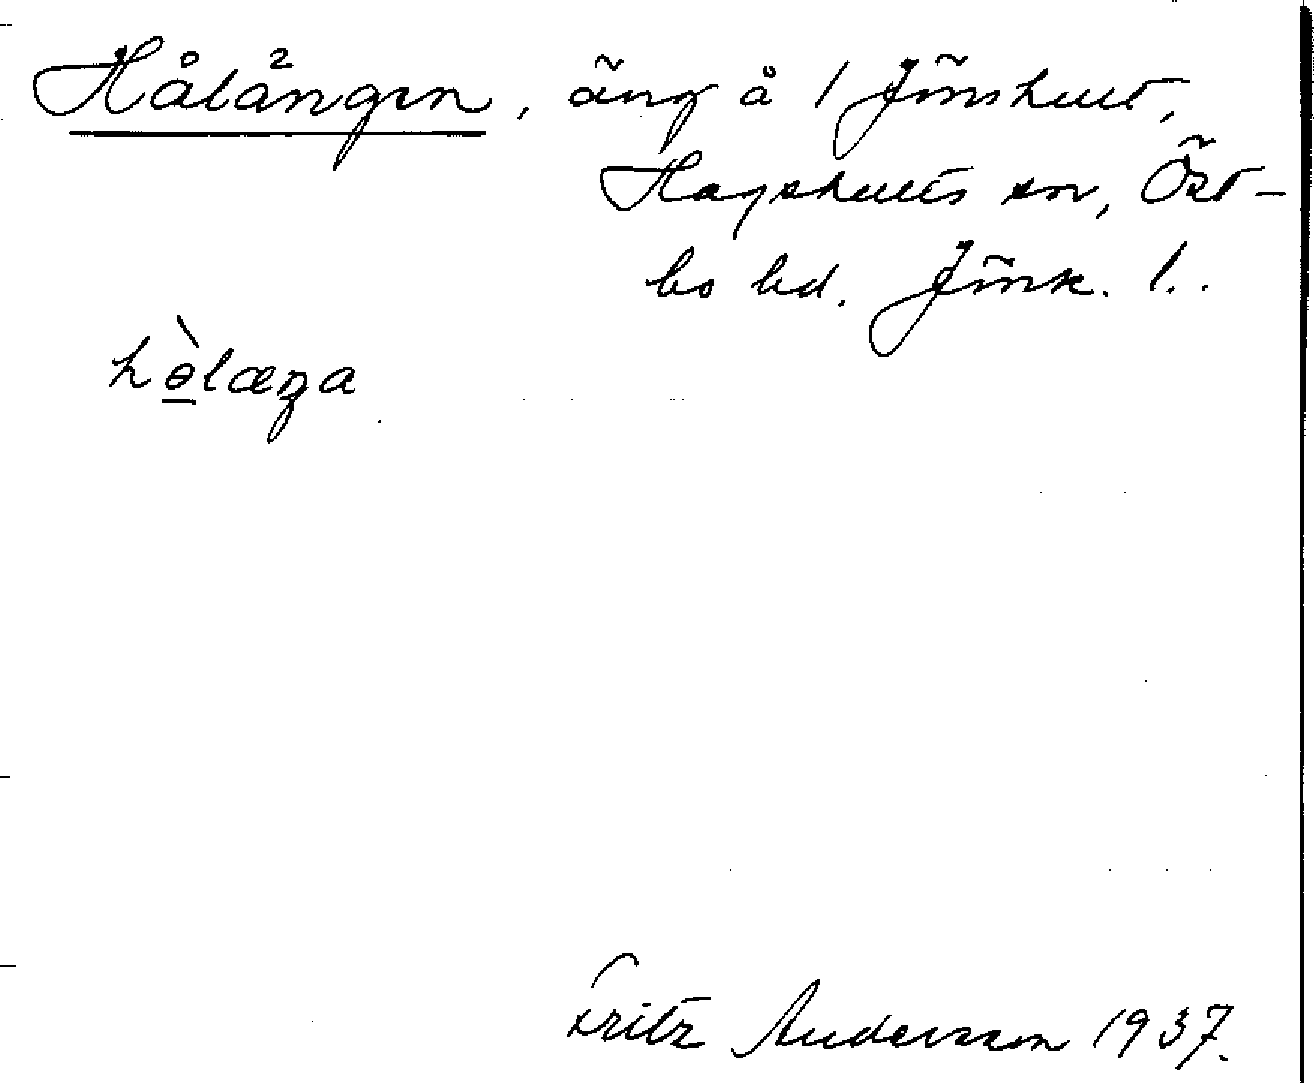 Hålängen, äng å 1 Jönshult,
Hagshults sn, Öst-
bo hd. Jönk. l..
hòlæŋa
Fritz Andersson 1937.